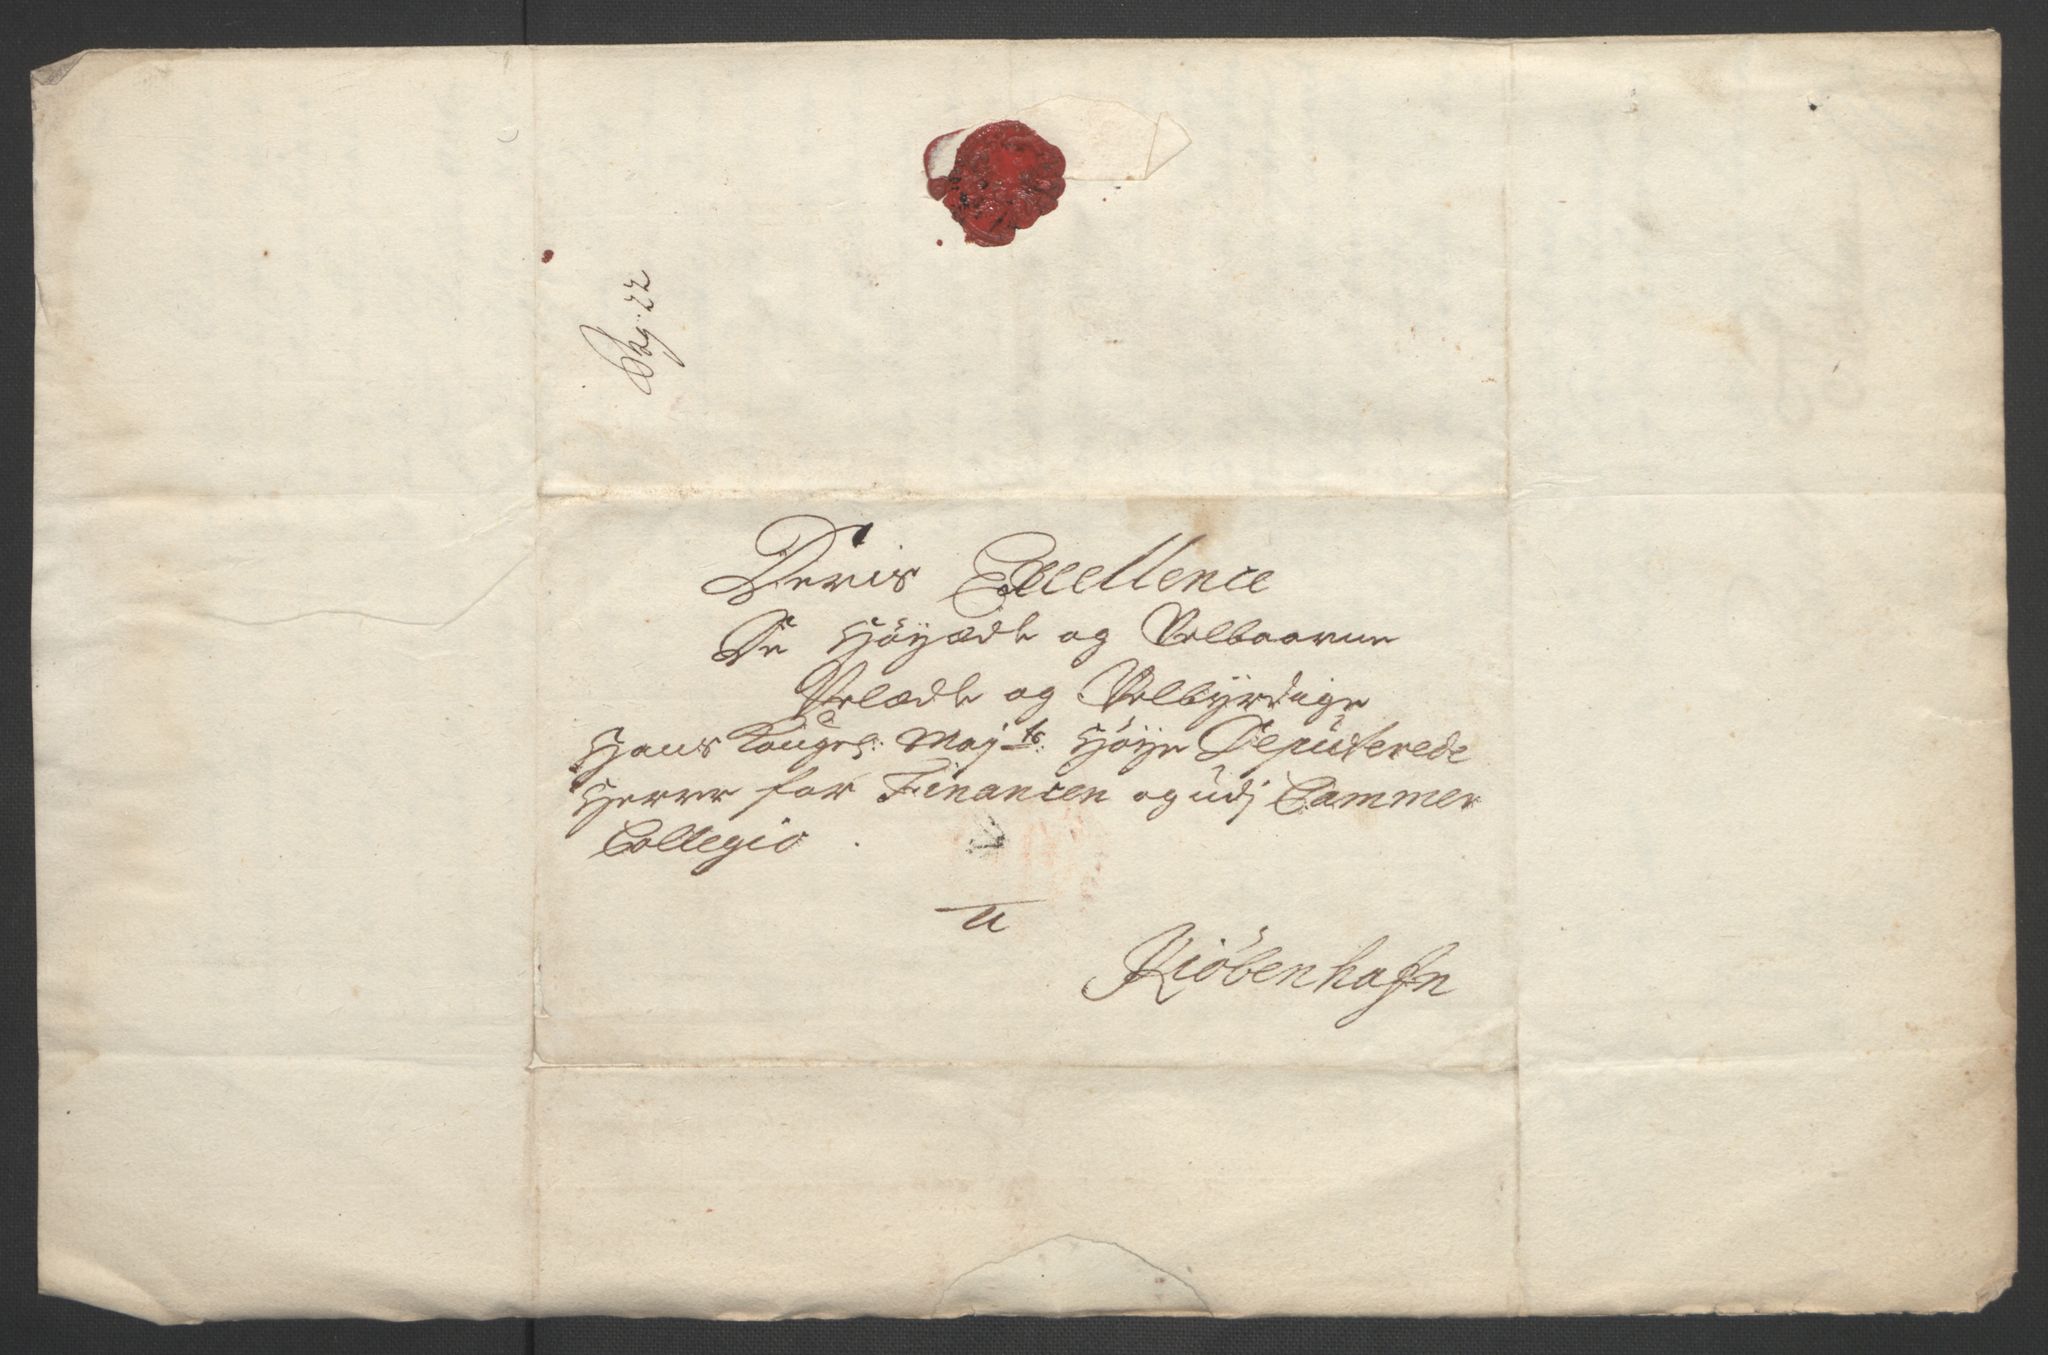 Pag: 22
Deris Excellence
De Höÿædle og Velbaarne
Velædle og Velbÿrdige
Hans Kongel: Maj:ts: Höÿe Deputerede
Herrer for Financen og udj Cammer
Collegio.
a
Kiöbenhafn